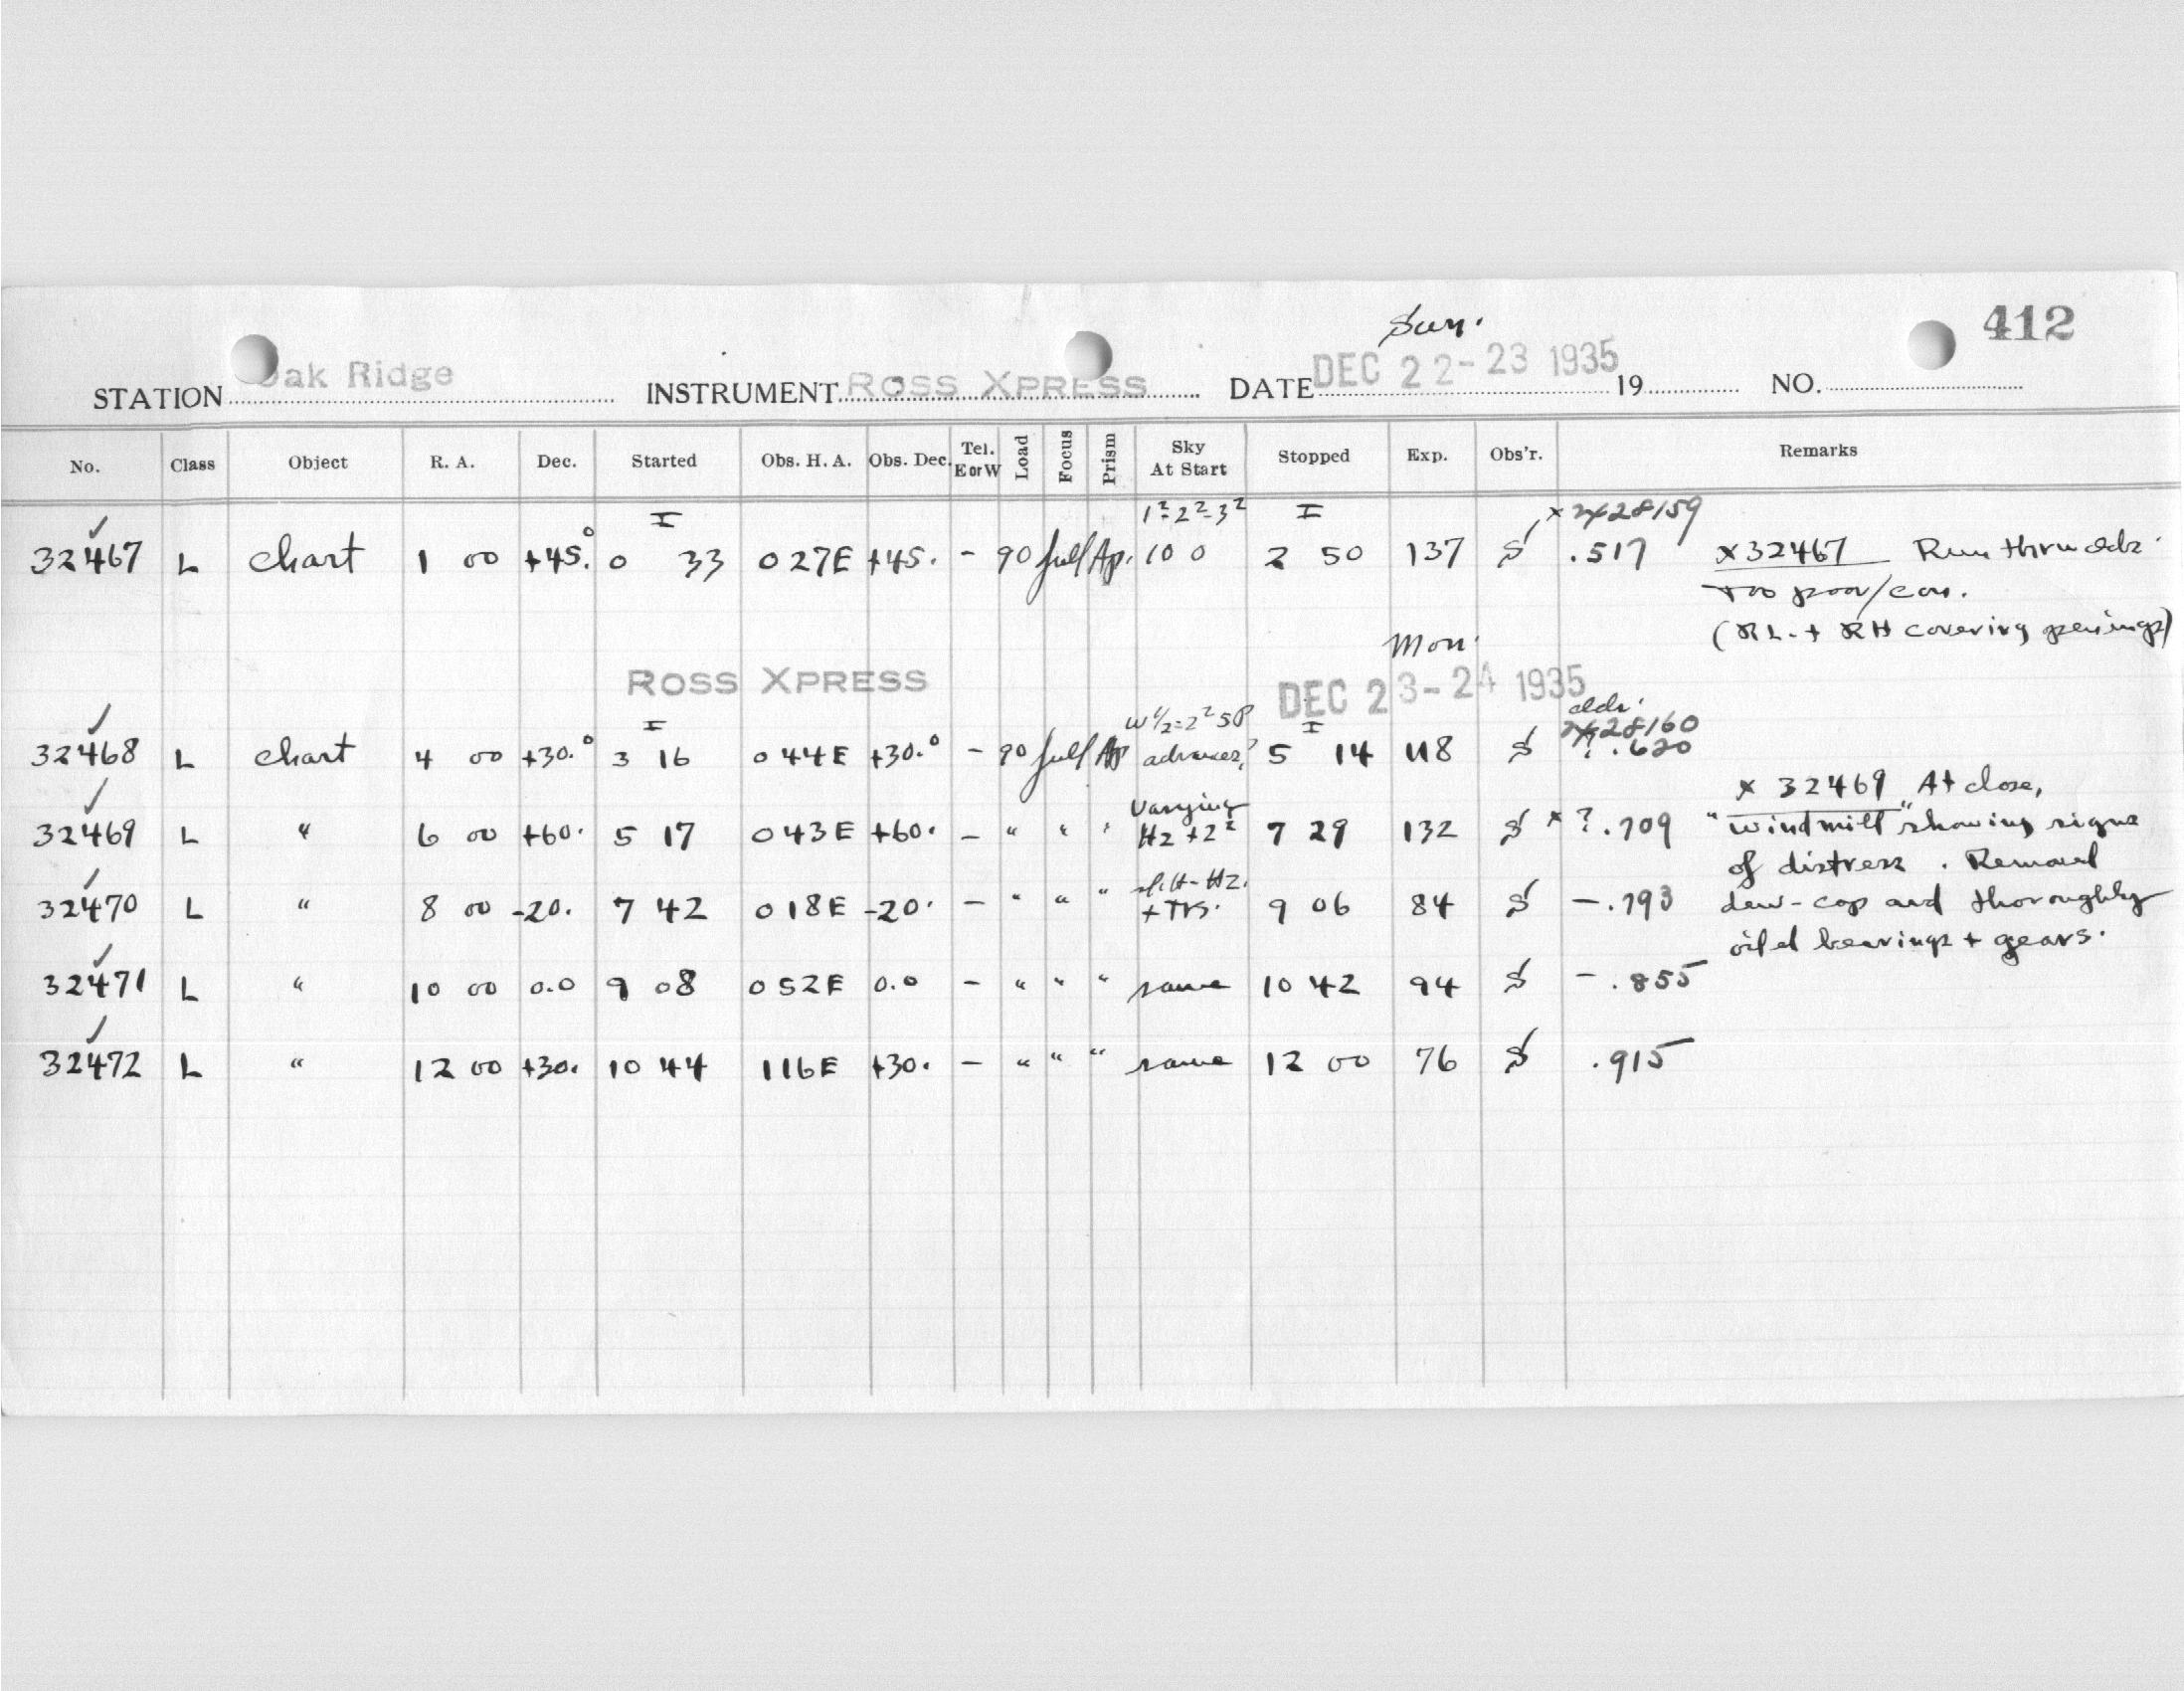 Sun. 412
STATION Oak Ridge INSTRUMENT ROSS XPRESS DATE DEC 22-23 1935 19 NO.
No. Class Object R. A. Dec. Started Obs. H. A. Obs. Dec. Tel. E or W Load Focus Prism Sky At Start Stopped Exp. Obs'r. Remarks
I I x 2428159
32467 L chart 1 00 +45.° 0 33 0 27E +45. - 90 full Ap. 10 0 2 50 137 S .517 x32467 Run thru clds.
too poor/con.
(RL. + RH covering openings)
Mon.
ROSS XPRESS DEC 23-24 1935
I I 2428160
32468 L chart 4 00 +30.° 3 16 0 44E +30.° - 90 full Ap 5 14 118 S ? .620
Varying x 32469 At close,
32469 L " 6 00 +60. 5 17 0 43E +60. - " " " Hz + 2² 7 29 132 S x ? .709 "windmill" showing signs
of distress. Removed
32470 L " 8 00 -20. 7 42 0 18E -20. - " " " 9 06 84 S - .793 dew-cap and thoroughly
oiled bearings + gears.
32471 L " 10 00 0.0 9 08 0 52E 0.0 - " " " same 10 42 94 S - .855
32472 L " 12 00 +30. 10 44 1 16E +30. - " " " same 12 00 76 S .915